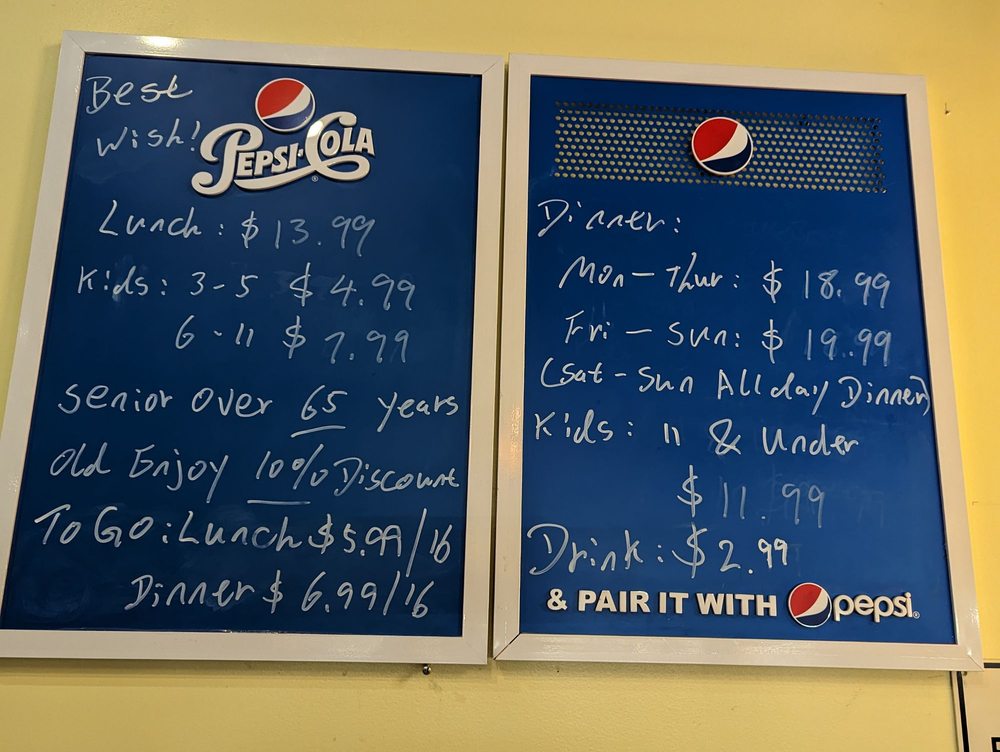 Best
Wish!
PEPSI·COLA
Lunch: $13.99
Kids: 3-5 $4.99
6-11 $7.99
Senior Over 65 years
Old Enjoy 10% Discount
To GO: Lunch $5.99/16
Dinner $6.99/16
Dinner:
Mon-Thur: $18.99
Fri-Sun: $19.99
(Sat-Sun All day Dinner)
Kids: 11 & Under
$11.99
Drink: $2.99
& PAIR IT WITH pepsi®